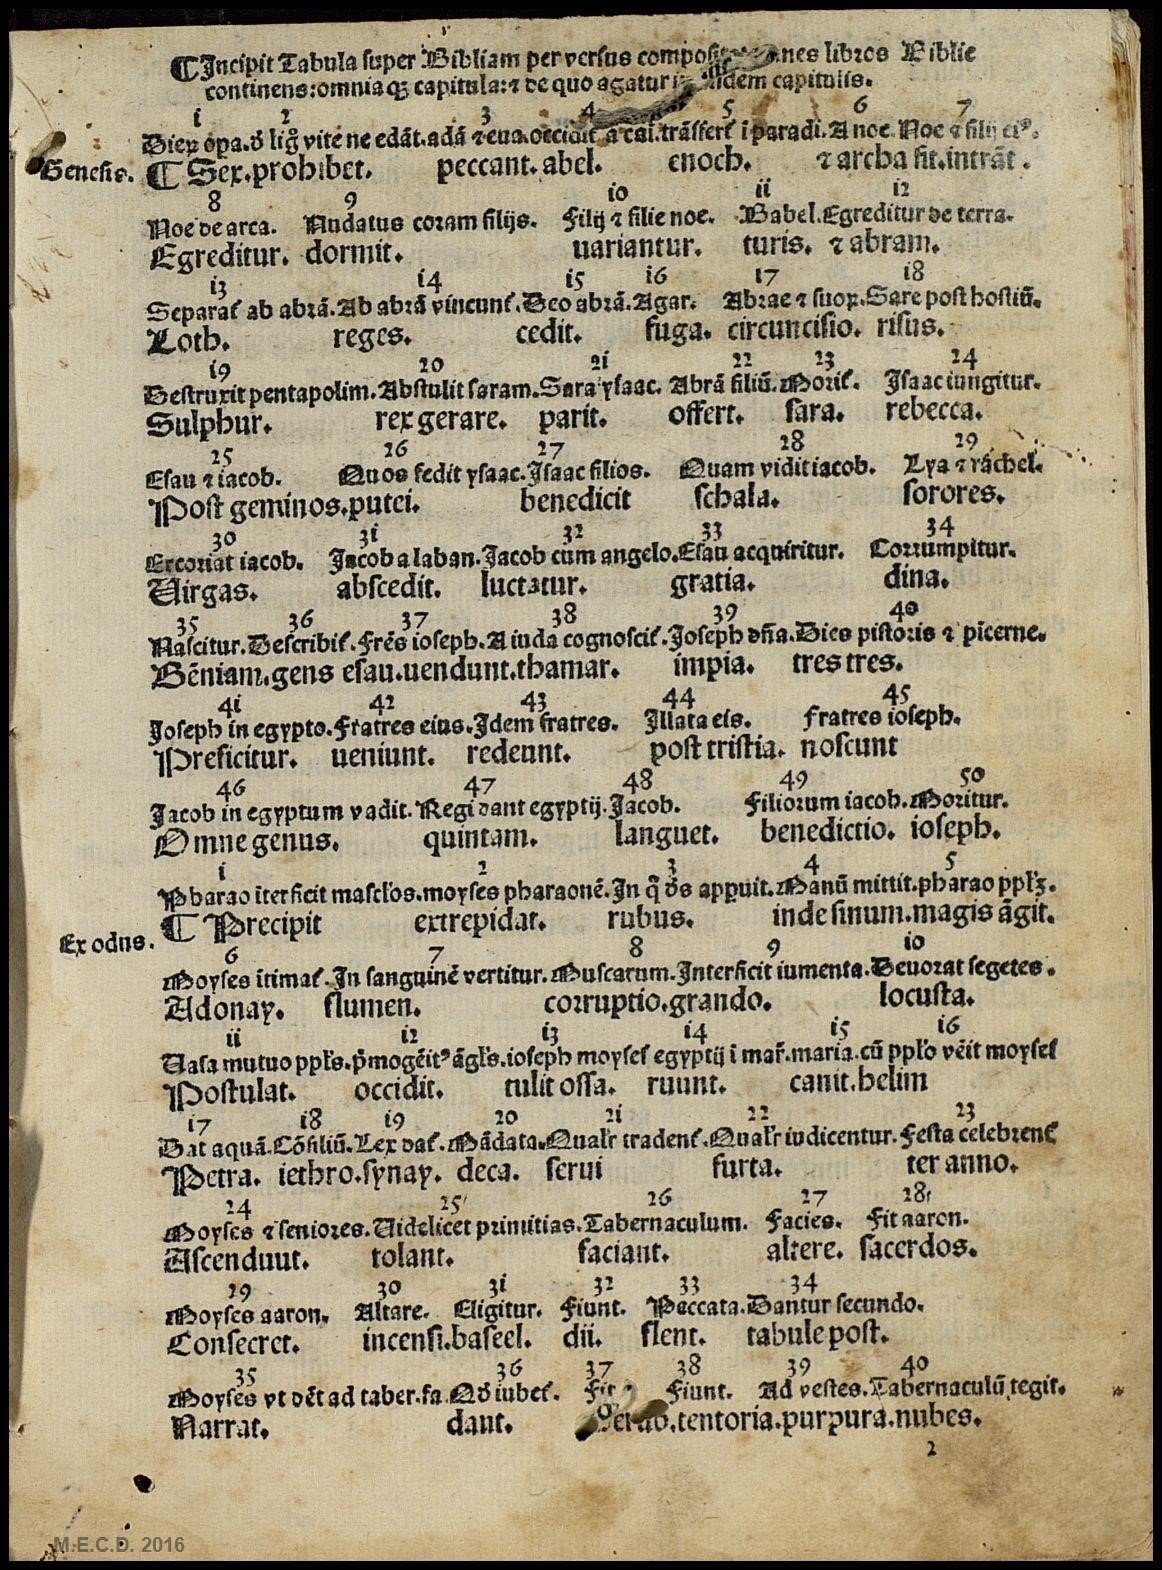 ¶ Incipit Tabula super Bibliam per versus nes libros Biblie
continens: omnia qꝫ capitula: ⁊ de quo agatur dem capitulis.
1 2 3 4 5 6 7
Dierꝝ oꝑa. vite ne edāt. adā ⁊ eua. occidit a cai. trāsfert̄ ī paradi. A noe. Noe ⁊ filij eiꝰ.
Genesis. ¶ Sex. prohibet. peccant. abel. enoch. ⁊ archa fit. intrāt.
8 9 10 11 12
Noe de arca. Nudatus coram filijs. Filij ⁊ filie noe. Babel. Egreditur de terra.
Egreditur. dormit. uariantur. turis. ⁊ abram.
13 14 15 16 17 18
Separat̄ ab abrā. Ab abrā vincunt̄. Deo abrā. Agar. Abrae ⁊ suoꝝ. Sare post hostiū.
Loth. reges. cedit. fuga. circuncisio. risus.
19 20 21 22 23 24
Destruxit pentapolim. Abstulit saram. Sara ysaac. Abrā filiū. Morit̄. Isaac iungitur.
Sulphur. rex gerare. parit. offert. sara. rebecca.
25 26 27 28 29
Esau ⁊ iacob. Quos fedit ysaac. Isaac filios. Quam vidit iacob. Lya ⁊ rachel.
Post geminos. putei. benedicit schala. sorores.
30 31 32 33 34
Excoriat iacob. Jacob a laban. Jacob cum angelo. Esau acquiritur. Corrumpitur.
Uirgas. abscedit. luctatur. gratia. dina.
35 36 37 38 39 40
Nascitur. Describit̄. Frēs ioseph. A iuda cognoscit̄. Joseph dn̄a. Dies pistoris ⁊ pīcerne.
Bēniam. gens esau. uendunt. thamar. impia. tres tres.
41 42 43 44 45
Joseph in egypto. Fratres eius. Idem fratres. Illata eis. Fratres ioseph.
Preficitur. ueniunt. redeunt. post tristia. noscunt
46 47 48 49 50
Jacob in egyptum vadit. Regi dant egyptij. Jacob. Filiorum iacob. Moritur.
Omne genus. quintam. languet. benedictio. ioseph.
1 2 3 4 5
Pharao īterficit mascl̄os. moyses pharaonē. In q̄ d̄s apparuit. Manū mittit. pharao ppl̄ꝫ.
Exodus. ¶ Precipit extrepidat. rubus. inde sinum. magis āgit.
6 7 8 9 10
Moyses ītimat̄. In sanguinē vertitur. Muscarum. Interficit iumenta. Deuorat segetes.
Adonay. flumen. corruptio. grando. locusta.
11 12 13 14 15 16
Uasa mutuo ppl̄s. p̄mogēitꝰ āgl̄s. ioseph moyses egyptij ī mar̄. maria. cū ppl̄o vēit moyses
Postulat. occidit. tulit ossa. ruunt. canit. helim
17 18 19 20 21 22 23
Dat aquā. Cōsiliū. Lex dat̄. Mādata. Qual̄r tradent̄. Qual̄r iudicentur. Festa celebrent̄
Petra. iethro. synay. deca. serui furta. ter anno.
24 25 26 27 28
Moyses ⁊ seniores. Uidelicet primitias. Tabernaculum. Facies. Fit aaron.
Ascenduut. tolant. faciant. altere. sacerdos.
29 30 31 32 33 34
Moyses aaron. Altare. Eligitur. Fiunt. Peccata. Dantur secundo.
Consecret. incensi. baseel. dii. flent. tabule post.
35 36 37 38 39 40
Moyses vt dēt ad taber. fa. Qd̄ iubet̄. Fit Fiunt. Ad vestes. Tabernaculū tegit.
Narrat. dant. tentoria. purpura. nubes.
2
M.E.C.D. 2016